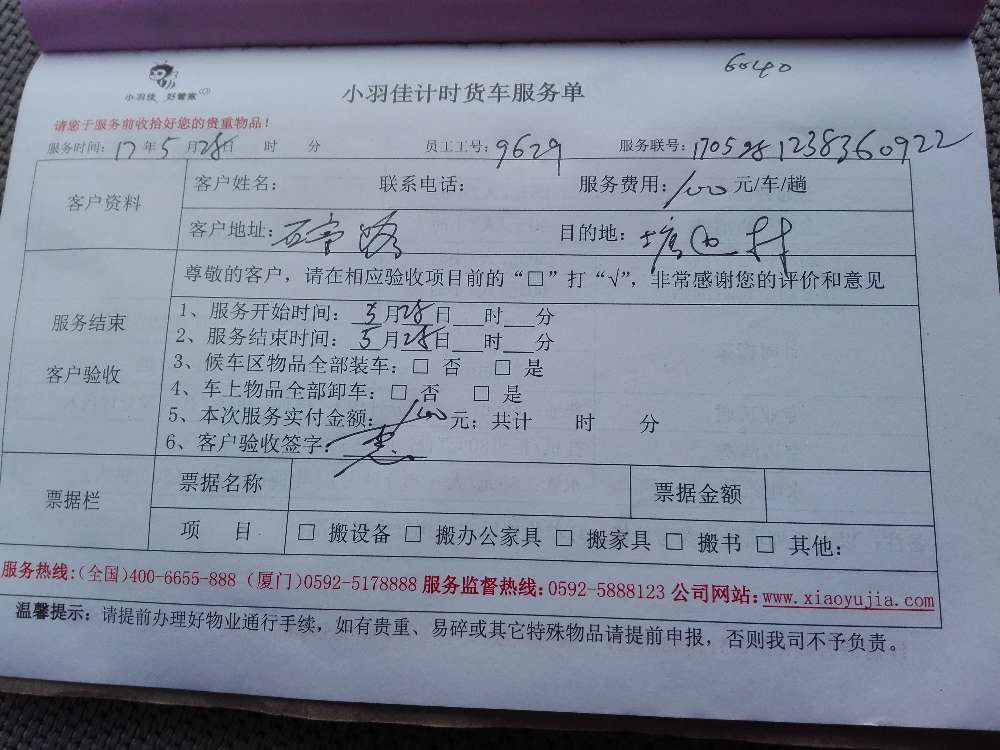 6040
小羽佳 好管家
小羽佳计时货车服务单
请您于服务前收拾好您的贵重物品！
服务时间：17年5月28日 时 分 员工工号：9629 服务联号：1705281238360922
客户资料
客户姓名： 联系电话： 服务费用：100元/车/趟
客户地址： 路 目的地： 村
服务结束
客户验收
尊敬的客户，请在相应验收项目前的“□”打“√”，非常感谢您的评价和意见
1、服务开始时间：5月28日___时___分
2、服务结束时间：5月28日___时___分
3、候车区物品全部装车：□ 否 □ 是
4、车上物品全部卸车：□ 否 □ 是
5、本次服务实付金额：100元；共计 时 分
6、客户验收签字：
票据栏
票据名称 票据金额
项 目 □ 搬设备 □ 搬办公家具 □ 搬家具 □ 搬书 □ 其他：
服务热线：（全国）400-6655-888（厦门）0592-5178888 服务监督热线：0592-5888123 公司网站：www.xiaoyujia.com
温馨提示：请提前办理好物业通行手续，如有贵重、易碎或其它特殊物品请提前申报，否则我司不予负责。